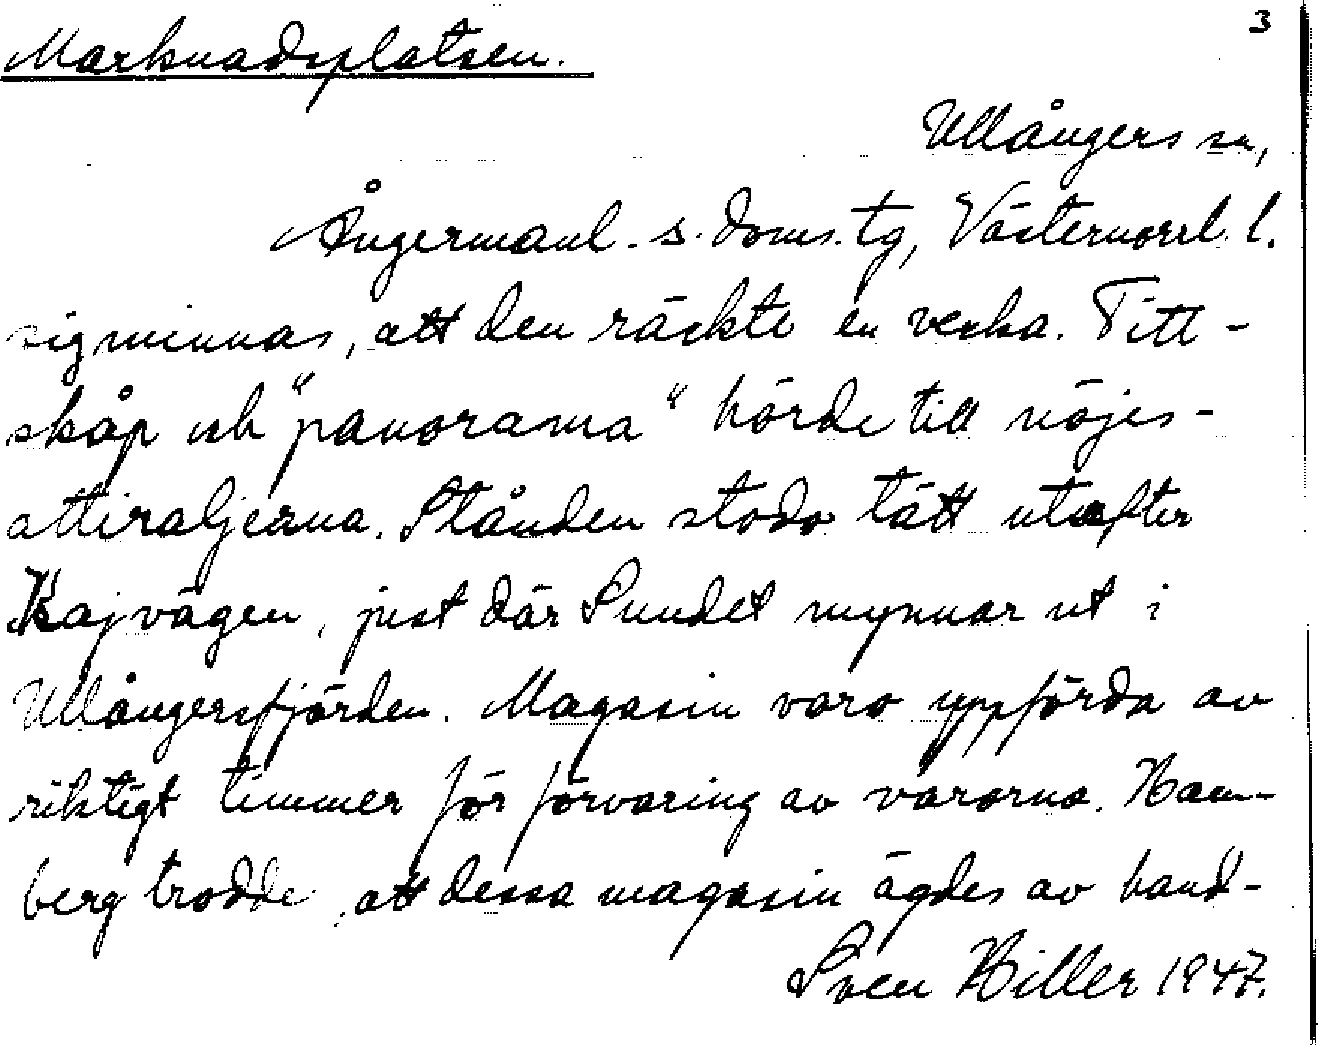 3
Marknadsplatsen.
Ullångers sn,
Ångermanl. s. doms. tg, Västernorrl. l.
sig minnas, att den räckte en vecka. Titt-
skåp och "panorama" hörde till nöjes-
attiraljerna. Stånden stodo tätt utefter
Kajvägen, just där Sundet mynnar ut i
Ullångersfjärden. Magasin voro uppförda av
riktigt timmer för förvaring av varorna. Ham-
berg trodde, att dessa magasin ägdes av hand-
Sven Hiller 1947.